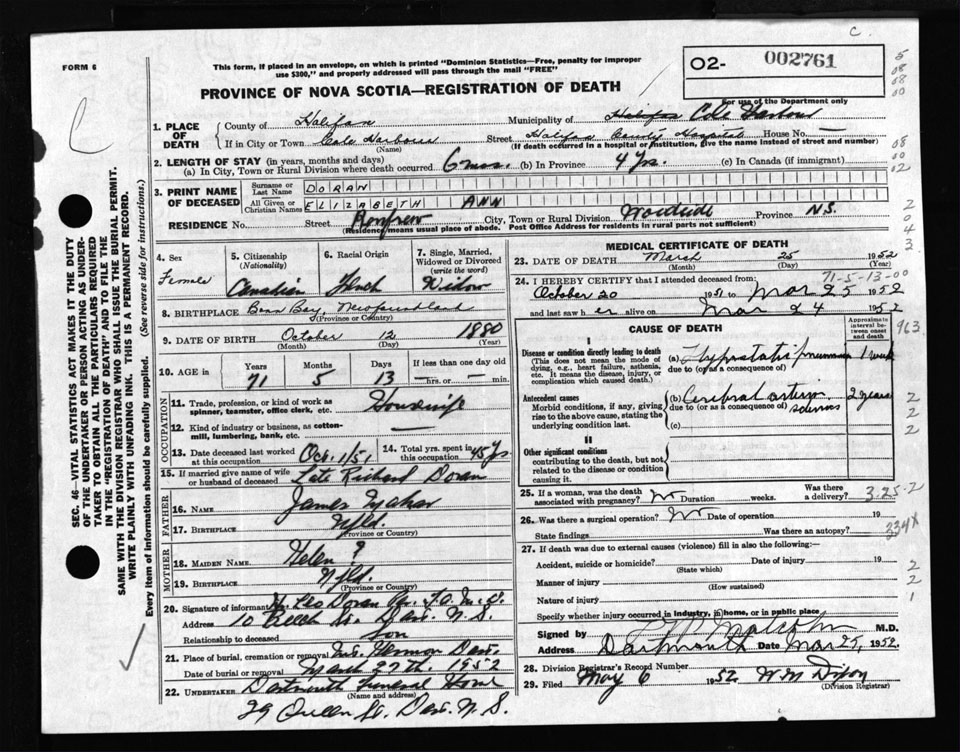 C.
FORM 6
This form, if placed in an envelope, on which is printed "Dominion Statistics—Free, penalty for improper
use $300," and properly addressed will pass through the mail "FREE"
O2- 002761
For use of the Department only
PROVINCE OF NOVA SCOTIA—REGISTRATION OF DEATH
1. PLACE OF DEATH
County of Halifax Municipality of Halifax Cole Harbour
If in City or Town Cole Harbour Street Halifax County Hospital House No. —
(Name) (If death occurred in a hospital or institution, give the name instead of street and number)
2. LENGTH OF STAY (in years, months and days)
(a) In City, Town or Rural Division where death occurred 6 mos. (b) In Province 4 Yrs. (c) In Canada (if immigrant)
3. PRINT NAME OF DECEASED
Surname or Last Name DORAN
All Given or Christian Names ELIZABETH ANN
RESIDENCE No. Street Renfrew City, Town or Rural Division Woodside Province N.S.
(Residence means usual place of abode. Post Office Address for residents in rural parts not sufficient)
4. Sex Female
5. Citizenship (Nationality) Canadian
6. Racial Origin French
7. Single, Married, Widowed or Divorced (write the word) Widow
8. BIRTHPLACE Bonn Bay, Newfoundland
(Province or Country)
9. DATE OF BIRTH October 12 1880
(Month) (Day) (Year)
10. AGE in Years Months Days If less than one day old
71 5 13 —hrs. or —min.
OCCUPATION
11. Trade, profession, or kind of work as spinner, teamster, office clerk, etc. Housewife
12. Kind of industry or business, as cotton-mill, lumbering, bank, etc. —
13. Date deceased last worked at this occupation Oct. 1/51
14. Total yrs. spent in this occupation 45 Yrs
15. If married give name of wife or husband of deceased Late Richard Doran
FATHER
16. NAME James
17. BIRTHPLACE Nfld.
(Province or Country)
MOTHER
18. MAIDEN NAME Helen ?
19. BIRTHPLACE Nfld.
(Province or Country)
20. Signature of informant Leo Doran
Address 10 Dart. N.S.
Relationship to deceased son
21. Place of burial, cremation or removal Mt. Hermon Dart.
Date of burial or removal March 27th. 1952
22. UNDERTAKER Dartmouth Funeral Home
(Name and address)
29 Queen St. Dart. N.S.
MEDICAL CERTIFICATE OF DEATH
23. DATE OF DEATH March 25 1952
(Month) (Day) (Year)
71-5-13-00
24. I HEREBY CERTIFY that I attended deceased from:
October 20 1951 to Mar 25 1952
and last saw her alive on Mar 24 1952
CAUSE OF DEATH
Approximate interval between onset and death
963
I
Disease or condition directly leading to death
(This does not mean the mode of dying, e.g., heart failure, asthenia, etc. It means the disease, injury, or complication which caused death.)
(a) Hypostatic pneumonia 1 week
due to (or as a consequence of)
Antecedent causes
Morbid conditions, if any, giving rise to the above cause, stating the underlying condition last.
(b) Cerebral arterio sclerosis 2 years
due to (or as a consequence of)
(c)
II
Other significant conditions
contributing to the death, but not related to the disease or condition causing it.
25. If a woman, was the death associated with pregnancy? No Duration weeks. Was there a delivery? 3-25-2
26. Was there a surgical operation? No Date of operation 19
State findings Was there an autopsy? 334X
27. If death was due to external causes (violence) fill in also the following:—
Accident, suicide or homicide? Date of injury 19
(State which)
Manner of injury
(How sustained)
Nature of injury
Specify whether injury occurred in industry, in home, or in public place
Signed by Malcolm M.D.
Address Dartmouth Date Mar 25, 1952.
28. Division Registrar's Record Number
29. Filed May 6 1952 W.M. Dixon
(Division Registrar)
SEC. 46—VITAL STATISTICS ACT MAKES IT THE DUTY
OF THE UNDERTAKER OR PERSON ACTING AS UNDER-
TAKER TO OBTAIN ALL THE PARTICULARS REQUIRED
IN THE "REGISTRATION OF DEATH" AND TO FILE THE
SAME WITH THE DIVISION REGISTRAR WHO SHALL ISSUE THE BURIAL PERMIT.
WRITE PLAINLY WITH UNFADING INK. THIS IS A PERMANENT RECORD.
Every item of information should be carefully supplied. (See reverse side for instructions.)